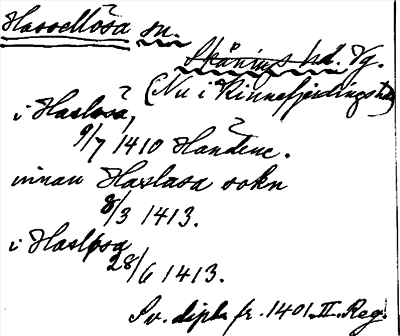 Hassellösa sn.
Skånings hd. Vg.
(Nu i Kinnefjerdings hd)
i Haslosa,
9/7 1410 Händene.
innan Haslasa sokn
8/3 1413.
i Haslösa
28/6 1413.
Sv. dipl. fr. 1401 II. Reg.